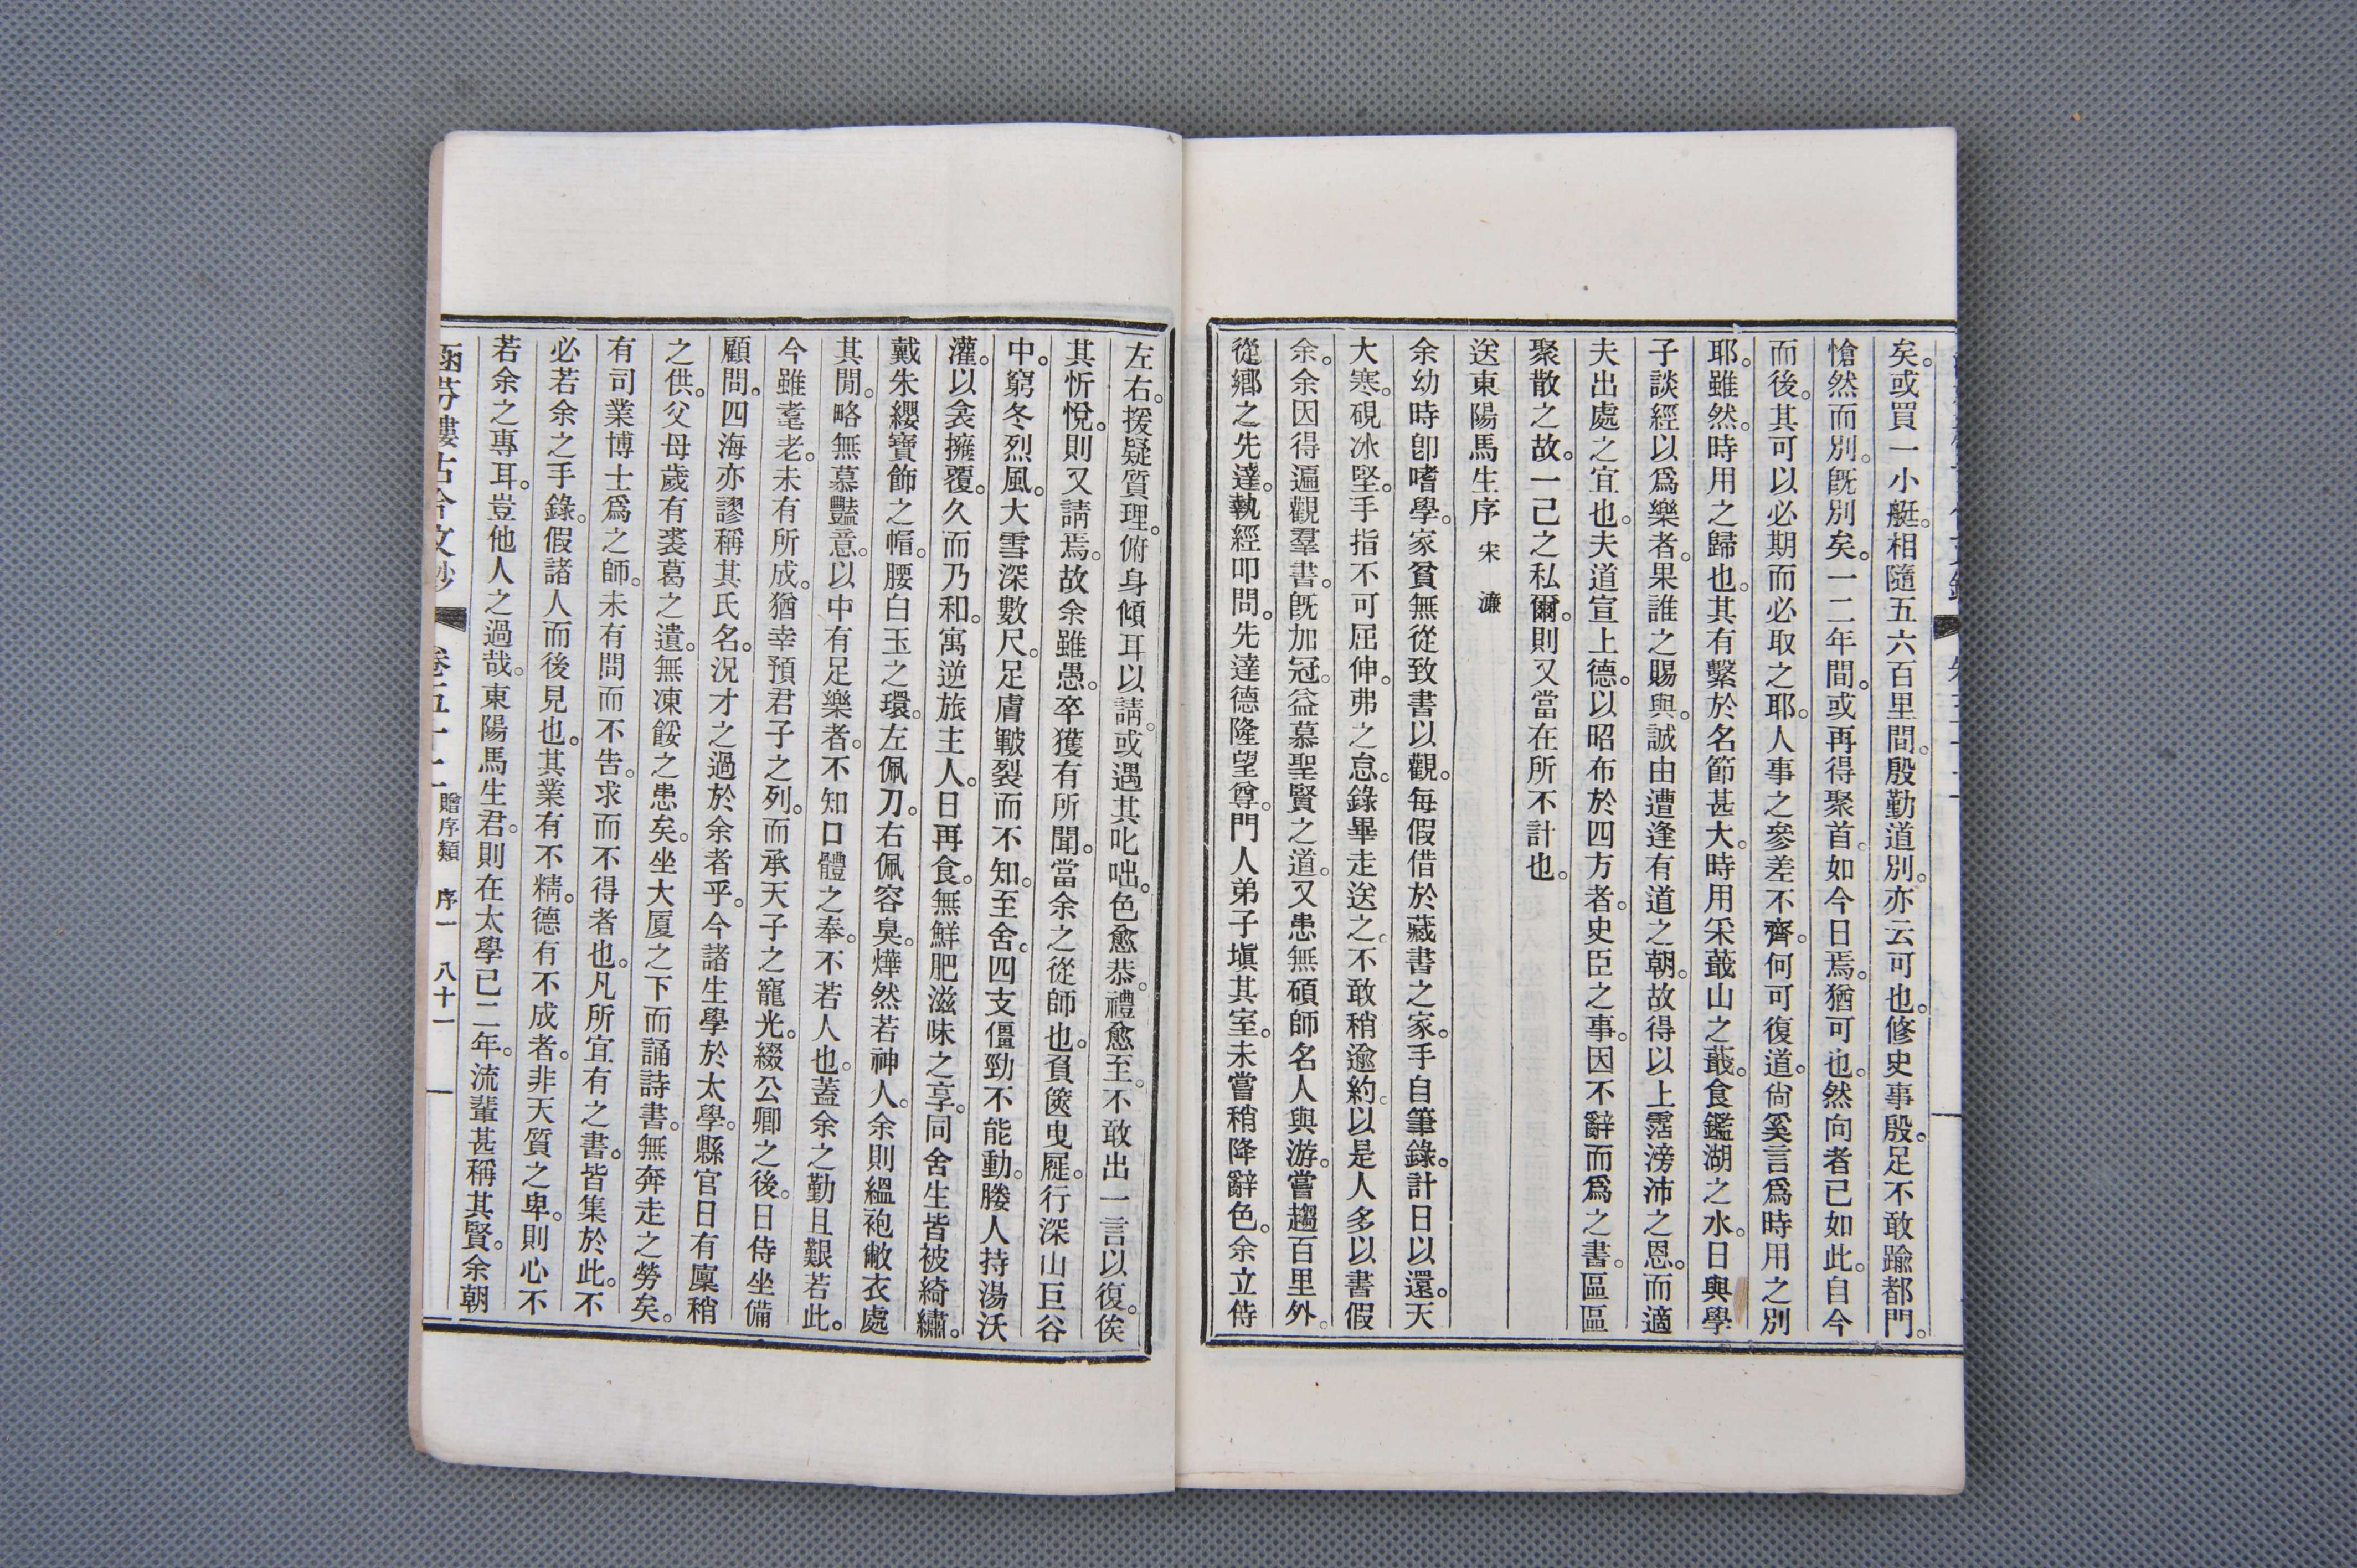 矣。或買一小艇。相隨五六百里間。殷勤道別。亦云可也。修史事殷。足不敢踰都門。
愴然而別。既別矣。一二年間。或再得聚首。如今日焉。猶可也。然向者已如此。自今
而後。其可以必期而必取之耶。人事之參差不齊。何可復道。尙奚言爲時用之別
耶。雖然。時用之歸也。其有繫於名節甚大。時用采蕺山之蕺。食鑑湖之水。日與學
子談經以爲樂者。果誰之賜與。誠由遭逢有道之朝。故得以上霑滂沛之恩。而適
夫出處之宜也。夫道宣上德。以昭布於四方者。史臣之事。因不辭而爲之書。區區
聚散之故。一己之私爾。則又當在所不計也。
送東陽馬生序 宋濂
余幼時卽嗜學。家貧無從致書以觀。每假借於藏書之家。手自筆錄。計日以還。天
大寒。硯冰堅。手指不可屈伸。弗之怠。錄畢走送之。不敢稍逾約。以是人多以書假
余。余因得遍觀羣書。旣加冠。益慕聖賢之道。又患無碩師名人與游。嘗趨百里外。
從鄉之先達。執經叩問。先達德隆望尊。門人弟子塡其室。未嘗稍降辭色。余立侍
左右。援疑質理。俯身傾耳以請。或遇其叱咄。色愈恭。禮愈至。不敢出一言以復。俟
其忻悅。則又請焉。故余雖愚。卒獲有所聞。當余之從師也。負篋曳屣。行深山巨谷
中。窮冬烈風。大雪深數尺。足膚皸裂而不知。至舍。四支僵勁不能動。媵人持湯沃
灌。以衾擁覆。久而乃和。寓逆旅主人。日再食。無鮮肥滋味之享。同舍生皆被綺繡。
戴朱纓寶飾之帽。腰白玉之環。左佩刀。右佩容臭。燁然若神人。余則縕袍敝衣處
其閒。略無慕豔意。以中有足樂者。不知口體之奉。不若人也。蓋余之勤且艱若此。
今雖耄老。未有所成。猶幸預君子之列。而承天子之寵光。綴公卿之後。日侍坐備
顧問。四海亦謬稱其氏名。況才之過於余者乎。今諸生學於太學。縣官日有廩稍
之供。父母歲有裘葛之遺。無凍餒之患矣。坐大厦之下而誦詩書。無奔走之勞矣。
有司業博士爲之師。未有問而不告。求而不得者也。凡所宜有之書。皆集於此。不
必若余之手錄。假諸人而後見也。其業有不精。德有不成者。非天質之卑。則心不
若余之專耳。豈他人之過哉。東陽馬生君。則在太學已二年。流輩甚稱其賢。余朝
涵芬樓古今文鈔 卷五十二 贈序類 序一 八十一